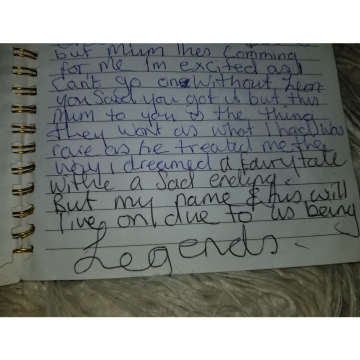 but Mum Ihes Comming
for me Im excited as I
Cant go on Without Leon
you Said you got it but this
Mum to you is the thing
they Want as what I had Was
rare as he treated me the
Way I dreamed a fairytale
withe a Sad ending.
But my name & his will
live on due to us being
Legends.